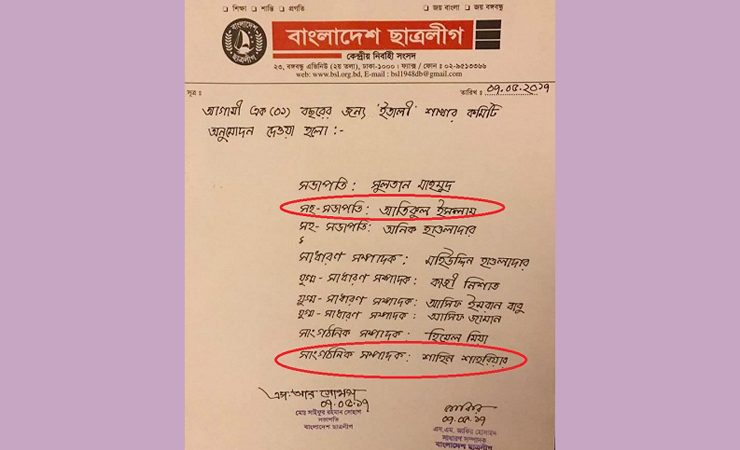 □ শিক্ষা □ শান্তি □ প্রগতি
□ জয় বাংলা □ জয় বঙ্গবন্ধু
বাংলাদেশ
ছাত্রলীগ
বাংলাদেশ ছাত্রলীগ
কেন্দ্রীয় নির্বাহী সংসদ
২৩, বঙ্গবন্ধু এভিনিউ (২য় তলা), ঢাকা-১০০০। ফ্যাক্স / ফোন : ০২-৯৫১৩৩৬৬
web: www.bsl.org.bd, E-mail : bsl1948db@gmail.com
সূত্র ঃ
তারিখ ঃ ০৭.০৫.২০১৭
আগামী এক (০১) বছরের জন্য 'ইতালী' শাখার কমিটি
অনুমোদন দেওয়া হলো :-
সভাপতি : সুলতান মাহমুদ
সহ-সভাপতি : আতিকুল ইসলাম
সহ-সভাপতি : অনিক হাওলাদার
সাধারণ সম্পাদক : মহিউদ্দিন হাওলাদার
যুগ্ম-সাধারণ সম্পাদক : কাজী নিশাত
যুগ্ম-সাধারণ সম্পাদক : আসিফ ইমরান বাবু
যুগ্ম-সাধারণ সম্পাদক : আসিফ জামান
সাংগঠনিক সম্পাদক : হিমেল মিযা
সাংগঠনিক সম্পাদক : শাহিন শাহরিয়ার
০৭.০৫.১৭
মোঃ সাইফুর রহমান সোহাগ
সভাপতি
বাংলাদেশ ছাত্রলীগ
০৭.০৫.১৭
এস.এম. জাকির হোসাইন
সাধারণ সম্পাদক
বাংলাদেশ ছাত্রলীগ